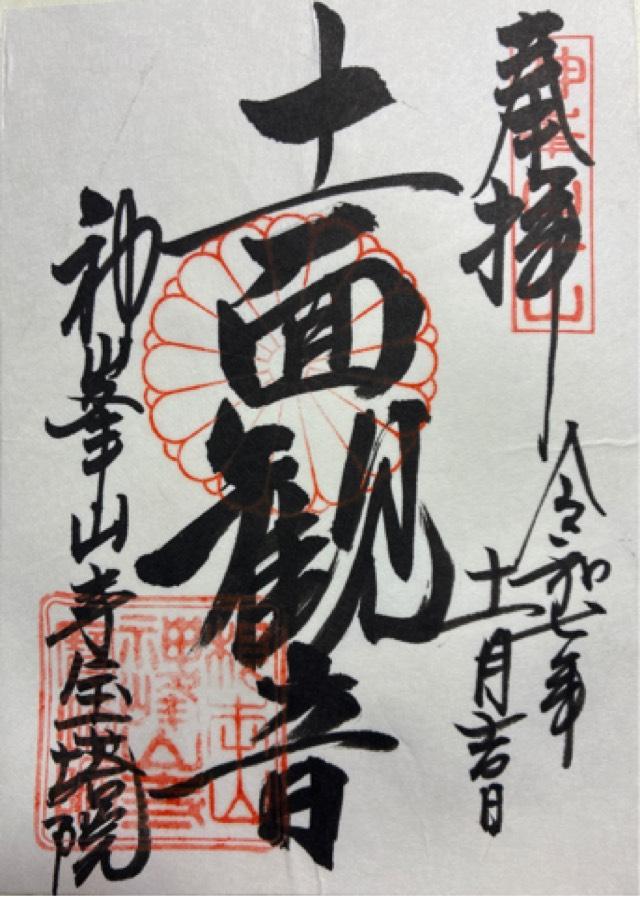 奉拝
令和七年
十一月吉日
十一面観音
神峯山寺宝塔院
神峯山寺